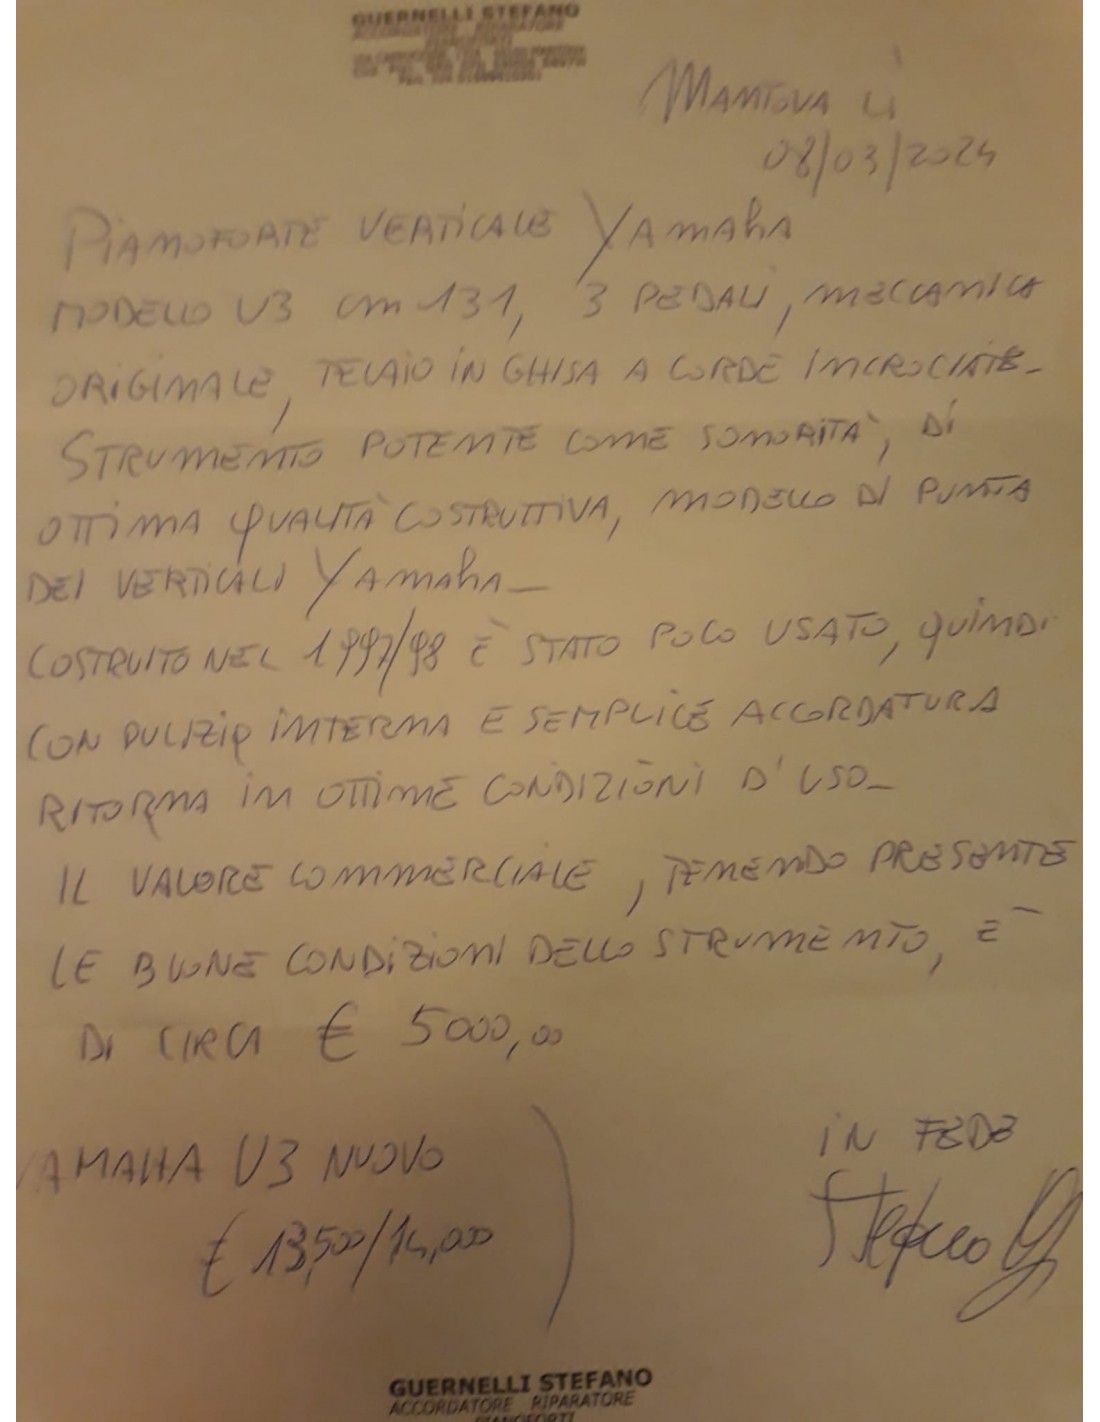 GUERNELLI STEFANO
ACCORDATORE RIPARATORE
PIANOFORTI
MANTOVA LÌ
08/03/2024
PIANOFORTE VERTICALE YAMAHA
MODELLO U3 cm 131, 3 PEDALI, MECCANICA
ORIGINALE, TELAIO IN GHISA A CORDE INCROCIATE-
STRUMENTO POTENTE COME SONORITÀ, DI
OTTIMA QUALITÀ COSTRUTTIVA, MODELLO DI PUNTA
DEI VERTICALI YAMAHA-
COSTRUITO NEL 1997/98 È STATO POCO USATO, QUINDI
CON PULIZIA INTERNA E SEMPLICE ACCORDATURA
RITORNA IN OTTIME CONDIZIONI D'USO-
IL VALORE COMMERCIALE, TENENDO PRESENTE
LE BUONE CONDIZIONI DELLO STRUMENTO, È
DI CIRCA € 5000,00
YAMAHA U3 NUOVO
€ 13,500/14,000
IN FEDE
Stefano
GUERNELLI STEFANO
ACCORDATORE RIPARATORE
PIANOFORTI